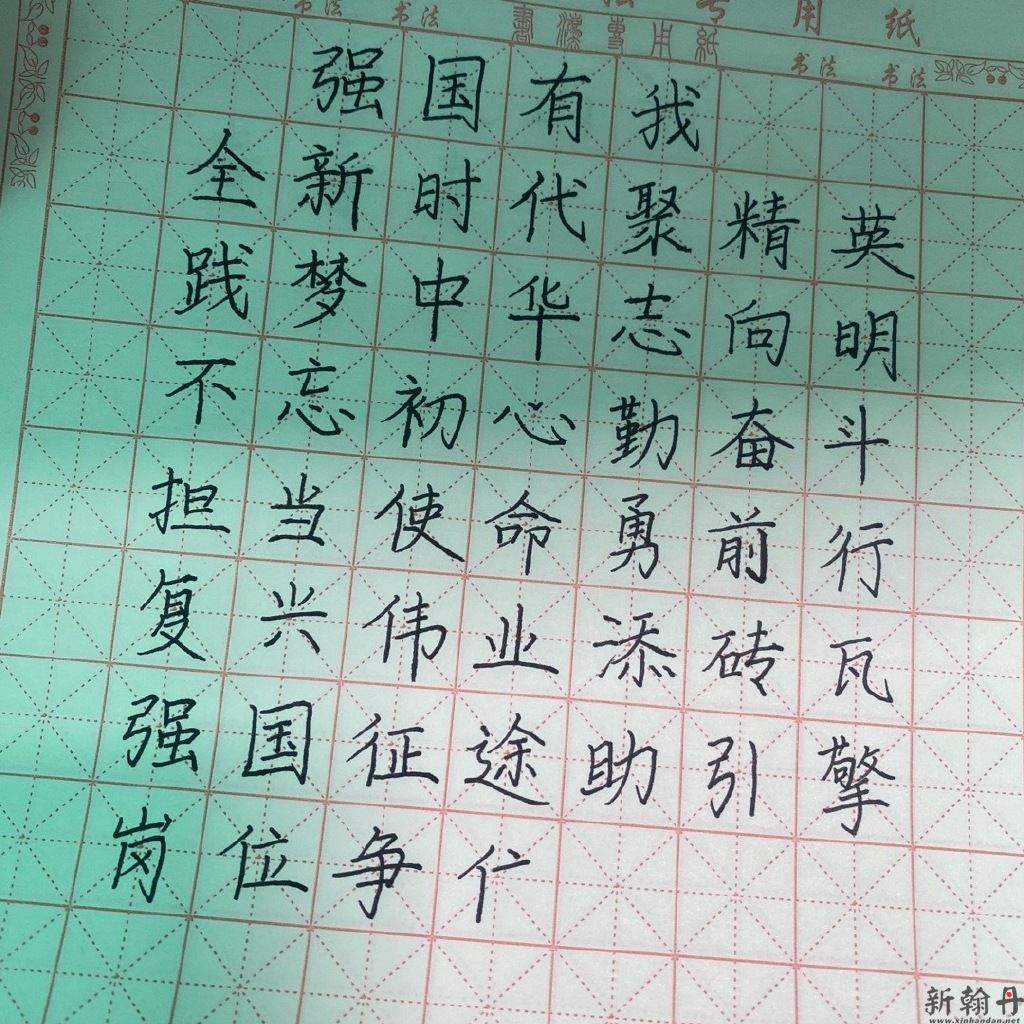 书法 书法 法 专 用 纸
書法專用紙
书法 书法
强国有我
全新时代聚精英
践梦中华志向明
不忘初心勤奋斗
担当使命勇前行
复兴伟业添砖瓦
强国征途助引擎
岗位争
新翰丹
www.xinhandan.net